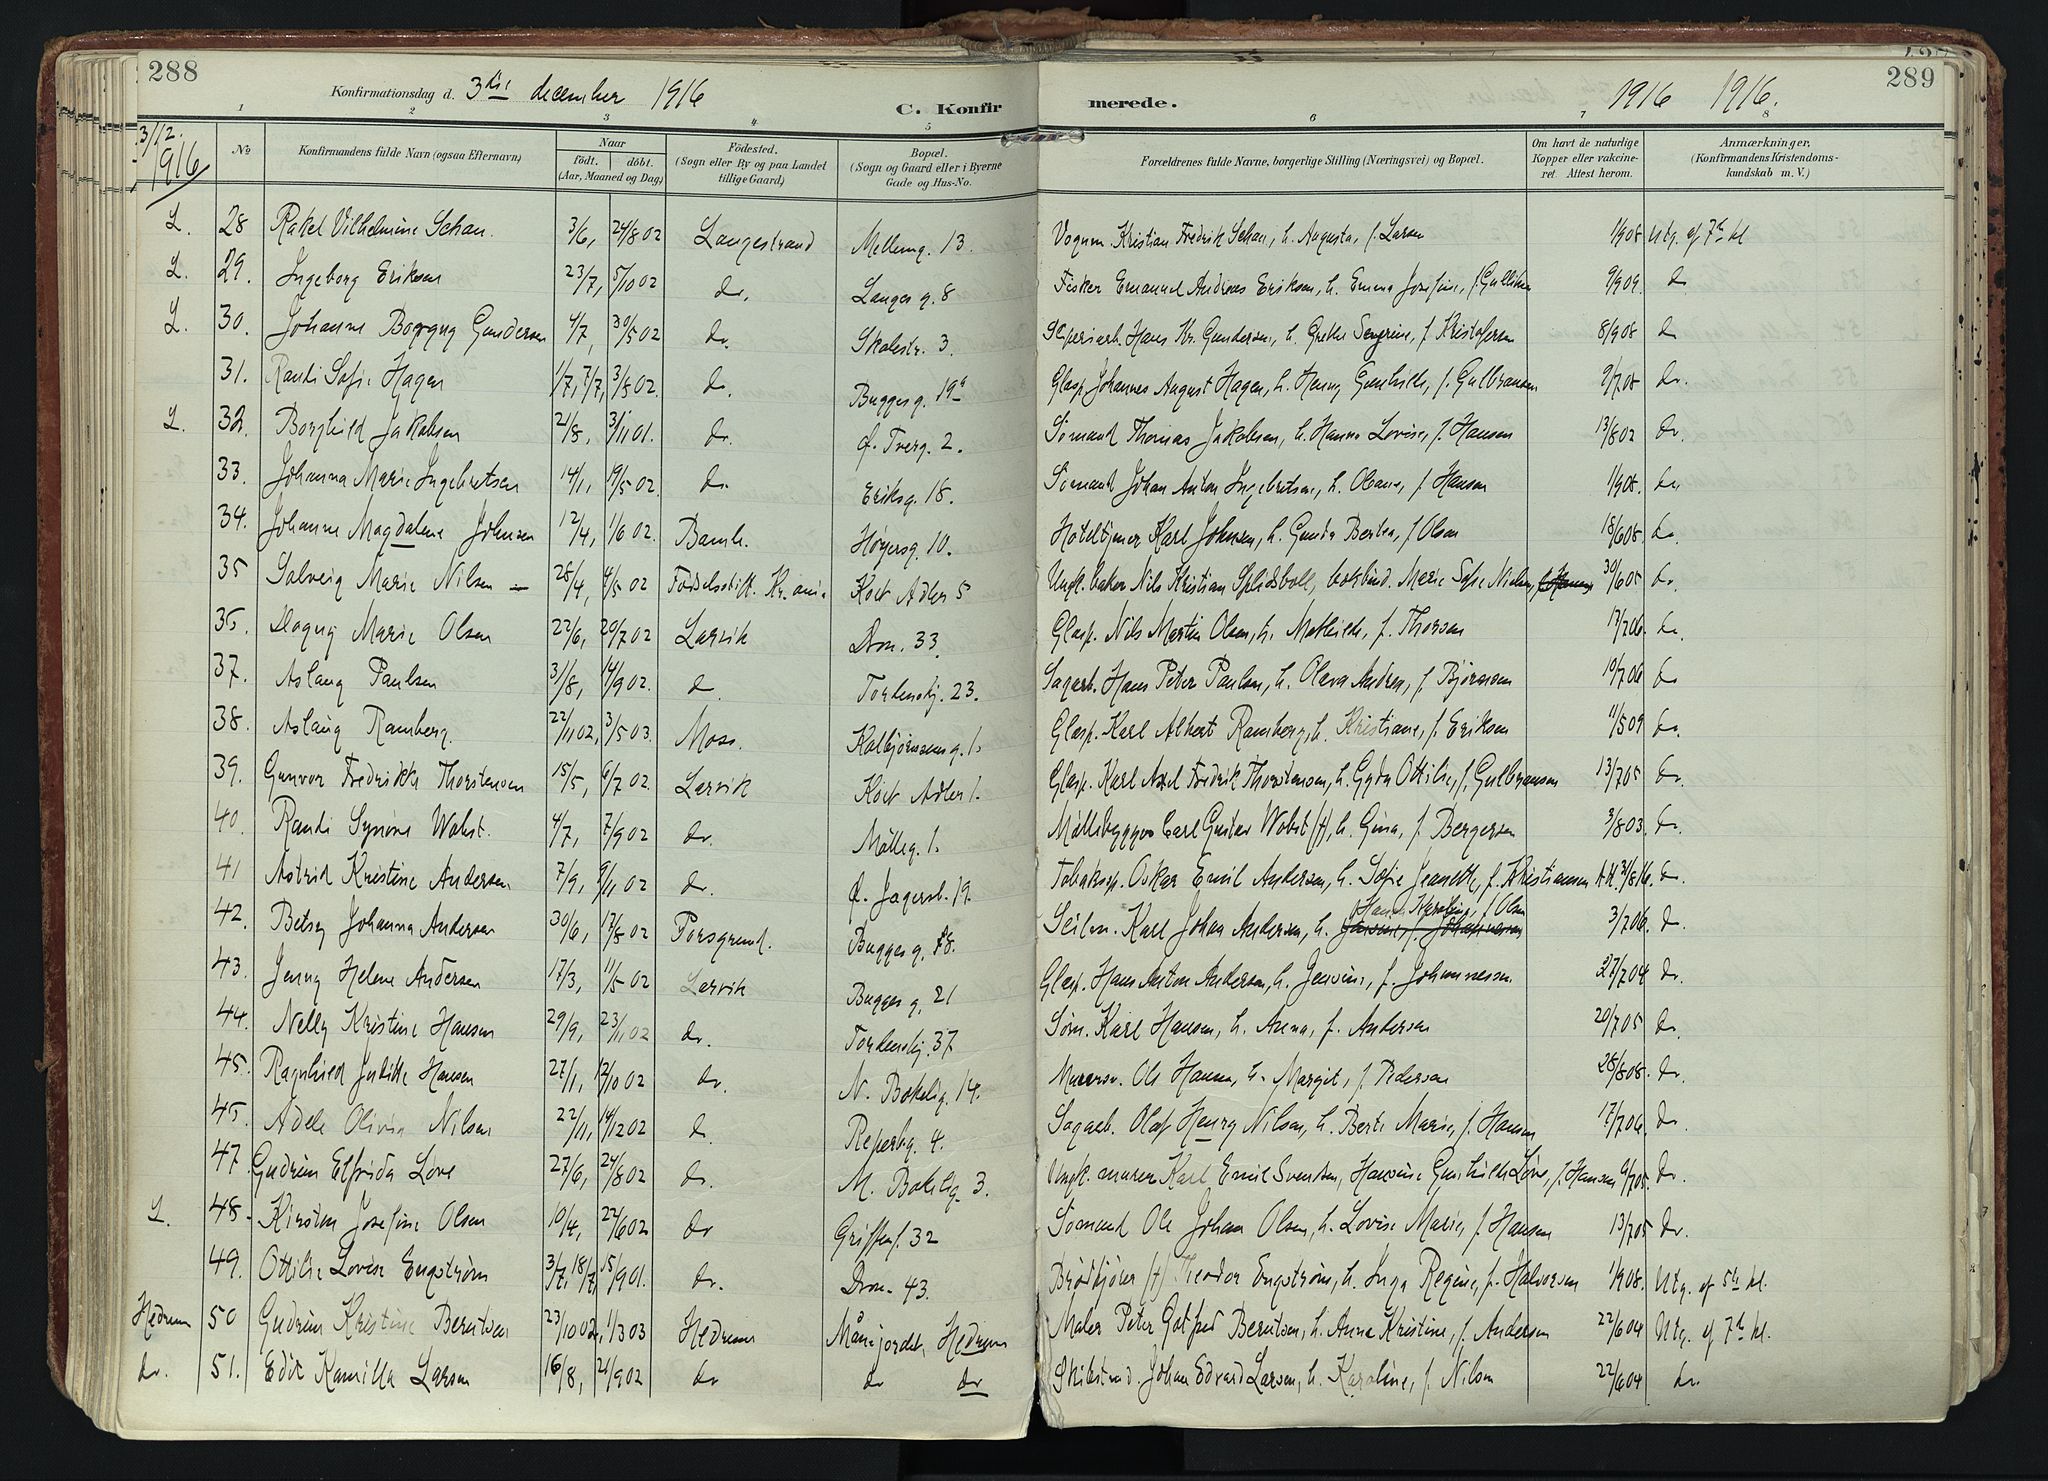 288
Konfirmationsdag d. 3die december 1916
C. Konfirmerede.
1916 1916.
289
1 2 3 4 5 6 7 8
3/12. 1916
No
Konfirmandens fulde Navn (ogsaa Efternavn)
Naar
födt. döbt.
(Aar, Maaned og Dag)
Födested.
(Sogn eller By og paa Landet
tillige Gaard)
Bopæl.
(Sogn og Gaard eller i Byerne
Gade og Hus-No.
Forældrenes fulde Navne, borgerlige Stilling (Næringsvei) og Bopæl.
Om havt de naturlige
Kopper eller vakcine-
ret Attest herom.
Anmærkninger,
(Konfirmandens Kristendoms-
kundskab m. V.)
L. 28 Rakel Vilhelmine Schau. 3/6, 24/8 02 Langestrand Mellemg. 13. Vognm. Kristian Fredrik Schau, h. Augusta, f. Larsen 1/908 Utg. af 7de kl
L. 29. Ingeborg Eriksen 23/7, 5/10 02 do. Langesg. 8 Fisker Emanuel Andreas Eriksen, h. Emma Josefine, f. Gulliksen 9/909. do
L. 30. Johanne Borgny Gundersen 4/7, 30/5 02 do. Skolestr. 3. Hans Kr. Gundersen, h. Grethe Severine, f. Kristofersen 8/908 do
31. Randi Sofie Hagen 1/7, 7/7, 3/8 02. do. Buggesg. 19a Glasp. Johannes August Hagen, h. Henny Gunhilda, f. Gulbransen 9/708 do.
L. 32. Borghild Jakobsen 21/8, 3/11 01. do. f. Tverg. 2. Sömand Thomas Jakobsen, h. Hanna Lovise, f. Hansen 13/802 do.
33. Johanna Marie Ingebretsen 14/1, 19/5 02. do. Eriksg. 18. Sömand Johan Anton Ingebretsen, h. Olava, f. Hansen 1/908. do.
34. Johanne Magdalene Johnsen 12/4, 1/6 02. Bamb. Høyersg. 10. Hoteltjener Karl Johnsen, h. Gunda Bertea, f. Olsen 18/608. do.
35 Solveig Marie Nilsen 28/4, 4/5 02 Födselsstift. Kr.ania Kort Adlers 5 Ungk. baker Nils Kristian Splidsboll, bokbind. Marie Sofie Nielsen, 30/605 do.
36. Dagny Marie Olsen 22/6, 20/7 02 Larvik Dron. 33. Glasp. Nils Martin Olsen, h. Mathilde, f. Thorsen 13/206. do.
37. Aslaug Paulsen 31/8, 14/9 02. do Tordenskj. 23. Sagarb. Hans Peter Paulsen, h. Olava Andrea, f. Bjørnsen 10/706 do
38. Aslaug Ramberg. 22/11 02, 3/5 03. Moss. Kolbjørnsensg. 1. Glasp. Karl Albert Ramberg, h. Kristiane, f. Eriksen 11/509 do.
39. Gunvor Fredrikke Thorstensen 15/5, 6/7 02. Larvik Kort Adlers 1. Glasp. Karl Axel Fredrik Thorstensen, h. Gyda Ottilie, f. Gulbransen 13/705 do.
40. Randi Synnøve Wobst. 4/7, 7/9 02 do. Mölleg. 1. Möllebygger Carl Gustav Wobst (+), h. Gina, f. Bergersen 3/803. do.
41 Astrid Kristine Andersen 7/9, 9/11 02 do. f. Jegersb. 19. Tobaksp. Oskar Emil Andersen, h. Sofie Jeanette, f. Kristiansen 3/816. do.
42. Betsy Johanna Andersen 30/6, 17/8 02 Porsgrund. Buggesg. 18. Seilm. Karl Johan Andersen, h. Hanna Karoline, f. Olsen 3/706. do.
43. Jenny Helene Andersen 17/3, 11/5 02 Larvik Buggesg. 21 Glasp. Hans Anton Andersen, h. Jensine, f. Johannessen 27/704 do.
44. Nelly Kristine Hansen 29/9, 23/11 02 do. Tordenskj. 37 Søm. Karl Hansen, h. Anna, f. Andersen 20/705 do.
45. Ragnhild Juditte Hansen 27/1, 12/10 02 do. N. Bøkelig. 14. Murersv. Ole Hansen, h. Margit, f. Pedersen 28/808. do.
46. Adele Olivia Nilsen 22/11, 14/12 02 do. Reperbg. 4. Sagarb. Olaf Henry Nilsen, h. Berte Marie, f. Hansen 17/706. do.
47. Gudrun Elfrida Løve 27/6, 24/8 02 do. M. Bøkelig. 3. Ungk. murer Karl Emil Svendsen, Hansine Gunhilde Løve, f. Hansen 9/705. do.
L. 48. Kirsten Josefine Olsen 10/4, 22/6 02 do Griffenf. 32 Sömand Ole Johan Olsen, h. Lovise Marie, f. Hansen 13/705 do.
49. Ottilie Lovise Engstrøm 3/7, 18/7, 15/9 01. do. Dron. 43. Brødkjører (+) Theodor Engstrøm, h. Inga Regine, f. Halvorsen 1/908. Utg. af 5te kl.
Hedrum 50 Gudrun Kristine Berntsen 23/10 02, 1/3 03 Hedrum Månejordet, Hedrum Maler Peter Gotfred Berntsen, h. Anna Kristine, f. Andersen 22/604 Utg. af 7de kl.
do. 51. Edit Kamilla Larsen 16/8, 21/9 02 do do do Johan Edvard Larsen, h. Karoline, f. Nilsen 22/604 do.